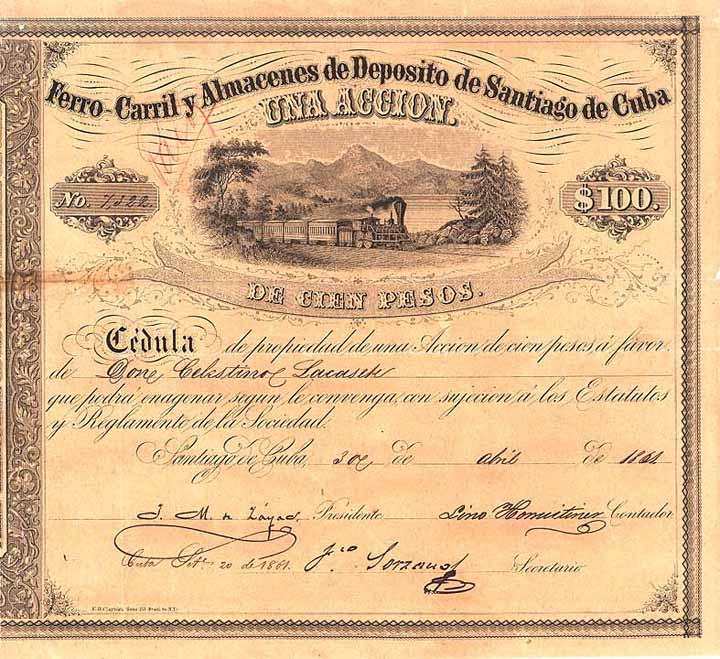 Ferro-Carril y Almacenes de Deposito de Santiago de Cuba
UNA ACCION.
No. 7322
$100.
DE CIEN PESOS.
Cédula de propiedad de una Accion de cien pesos á favor
de Don Celestino
que podrá enagenar segun le convenga, con sujecion á los Estatutos
y Reglamento de la Sociedad.
Santiago de Cuba, 30 de abril de 1861.
J. M. Zayas, Presidente Lino Contador
Cuba 20 de 1861. Sorzano Secretario